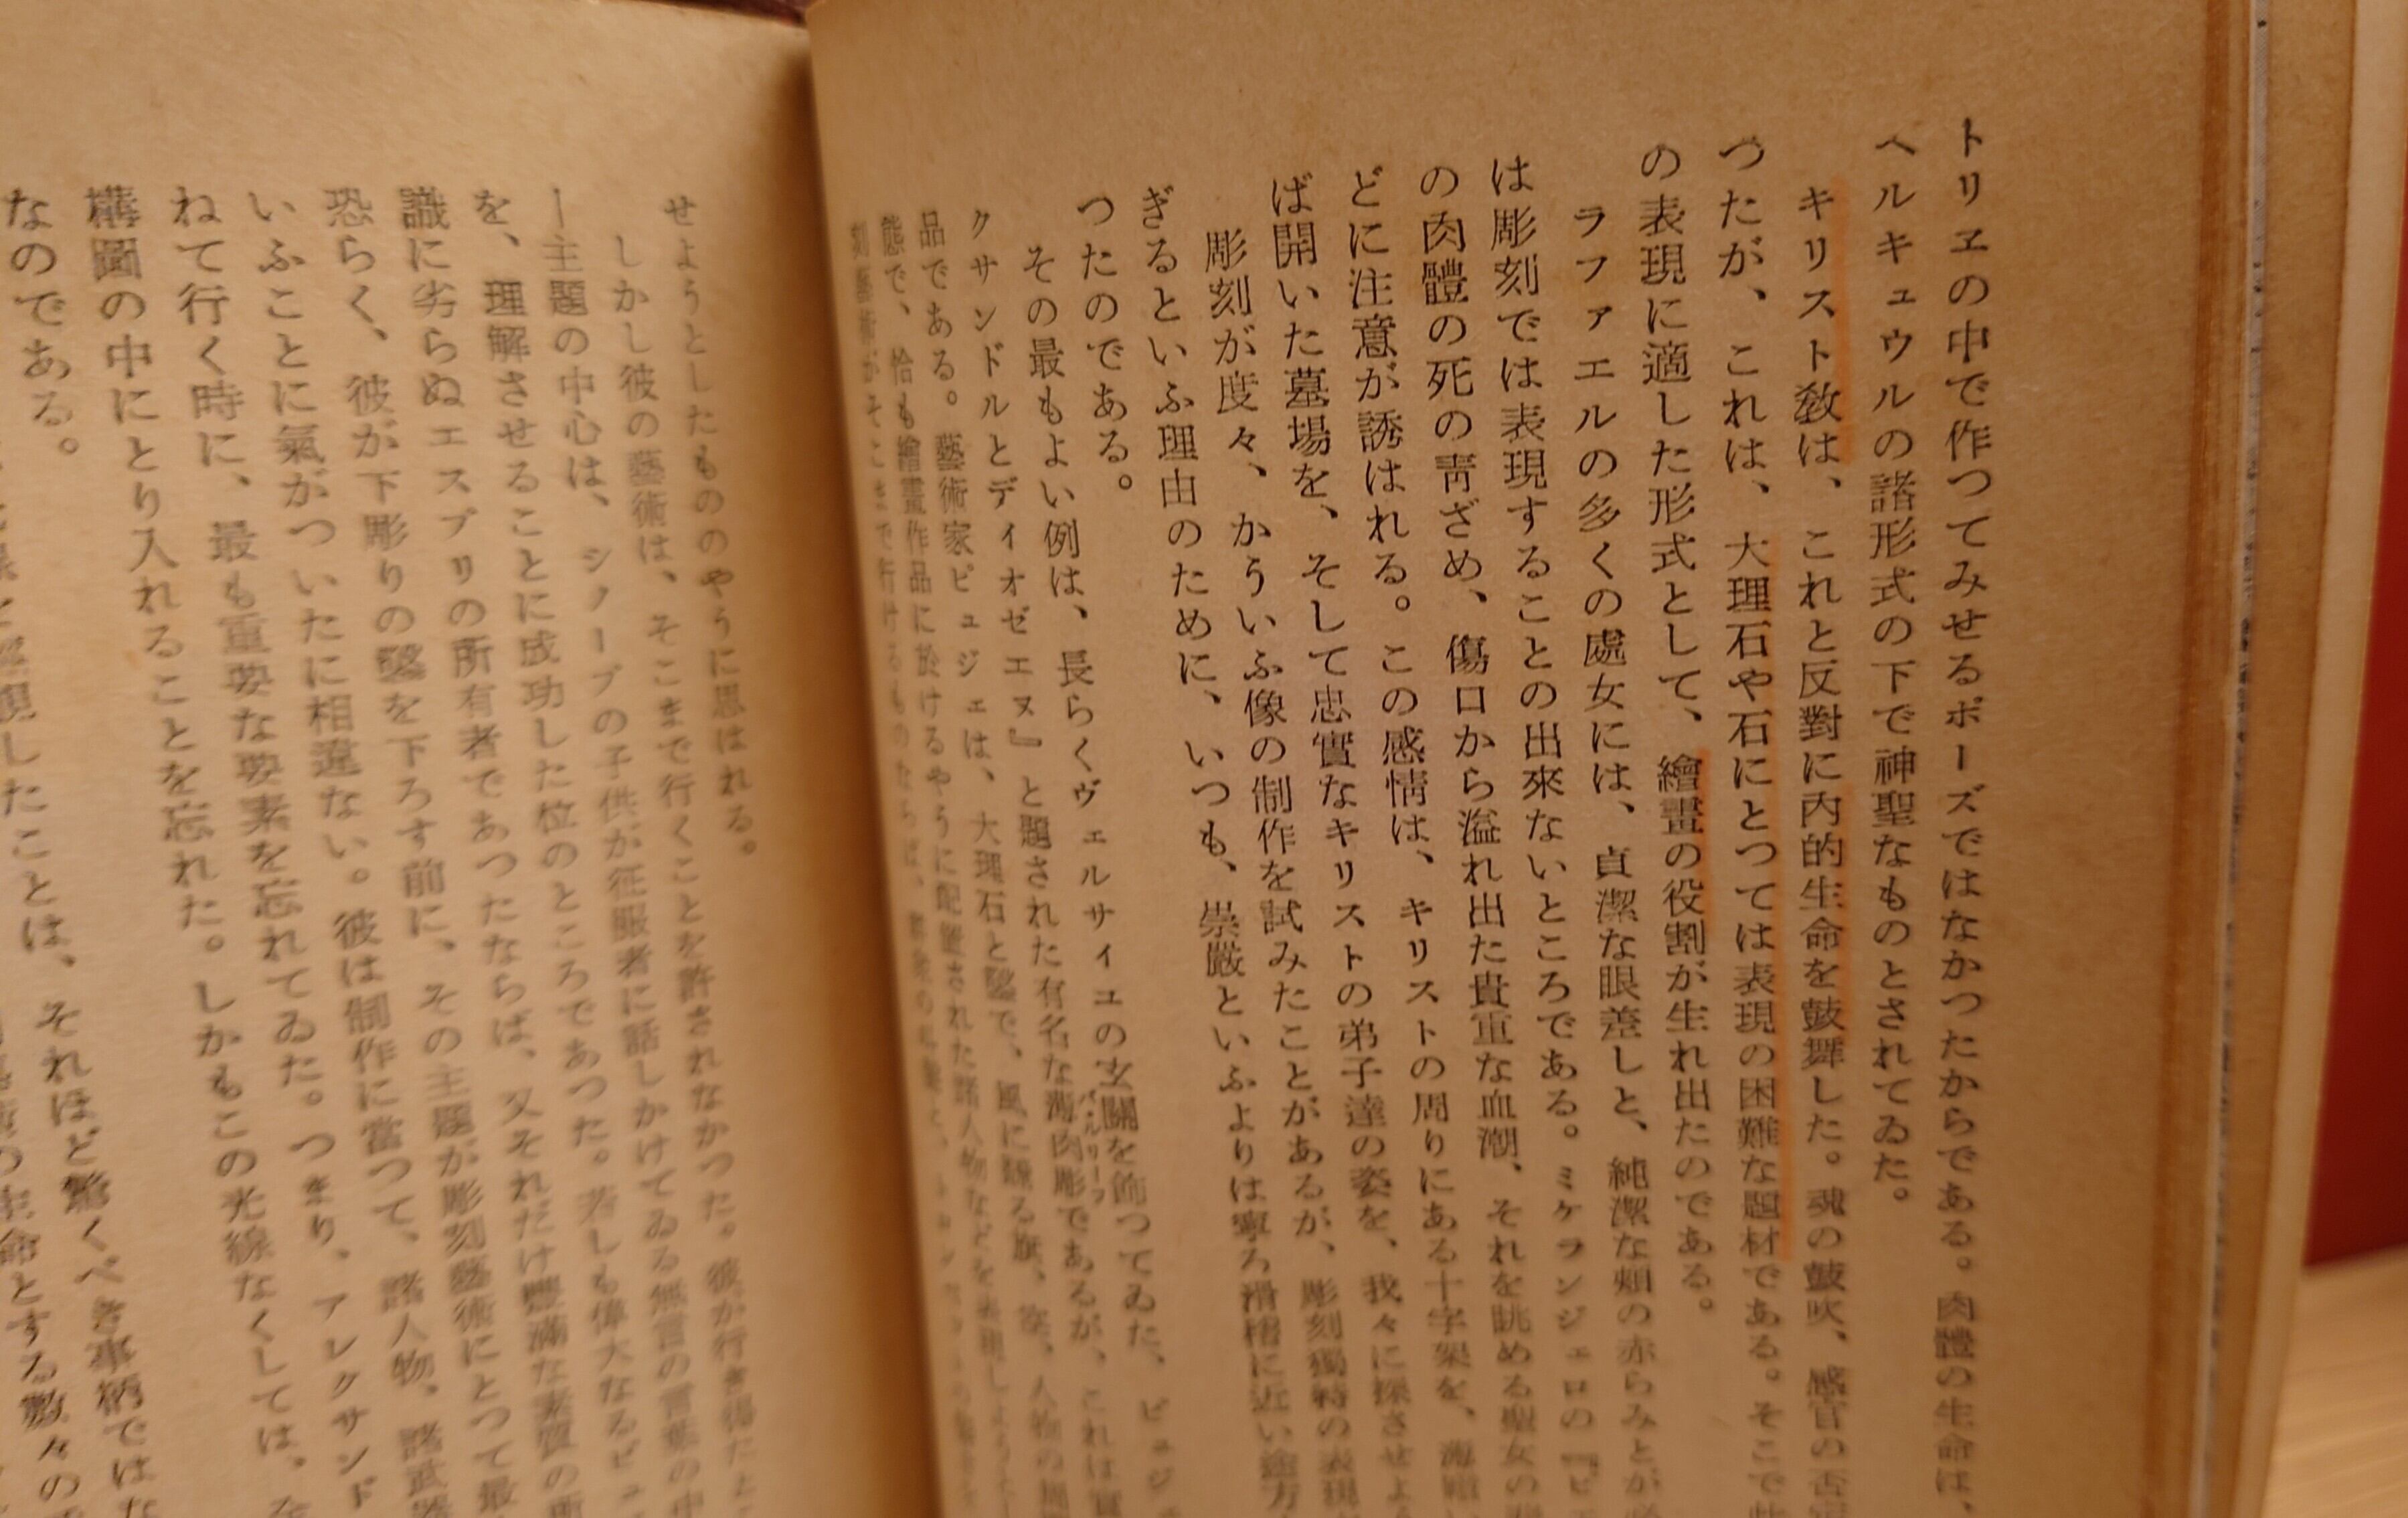 トリヱの中で作つてみせるポーズではなかつたからである。肉體の生命は、
ヘルキュウルの諸形式の下で神聖なものとされてゐた。
キリスト敎は、これと反對に內的生命を鼓舞した。魂の鼓吹、感官の否定
つたが、これは、大理石や石にとつては表現の困難な題材である。そこで
の表現に適した形式として、繪畫の役割が生れ出たのである。
ラファエルの多くの處女には、貞潔な眼差しと、純潔な頰の赤らみとが
は彫刻では表現することの出來ないところである。ミケランジェロの『ピエ
の肉體の死の靑ざめ、傷口から溢れ出た貴重な血潮、それを眺める聖女の
どに注意が誘はれる。この感情は、キリストの周りにある十字架を、
ば開いた墓場を、そして忠實なキリストの弟子達の姿を、我々に探させよう
彫刻が度々、かういふ像の制作を試みたことがあるが、彫刻獨特の表現
ぎるといふ理由のために、いつも、崇嚴といふよりは寧ろ滑稽に近い途方
つたのである。
その最もよい例は、長らくヴェルサイエの玄關を飾つてゐた、ピュジェ
クサンドルとディオゼエヌ』と題された有名な海肉彫バルリーフであるが、これは
品である。藝術家ピュジェは、大理石と鑿で、風に飜る旗、空、人物の
態で、恰も繪畫作品に於けるやうに配置された諸人物などを表現しようと
刻藝術がそこまで行けるものならば、
せようとしたもののやうに思はれる。
しかし彼の藝術は、そこまで行くことを許されなかつた。彼が行き得たと
ー主題の中心は、シノープの子供が征服者に話しかけてゐる無言の言葉の中
を、理解させることに成功した位のところであつた。若しも偉大なるピュ
識に劣らぬエスプリの所有者であつたならば、又それだけ豐滿な素質の所
恐らく、彼が下彫りの鑿を下ろす前に、その主題が彫刻藝術にとつて最
いふことに氣がついたに相違ない。彼は制作に當つて、諸人物、諸武器
ねて行く時に、最も重要な要素を忘れてゐた。つまり、アレクサンド
構圖の中にとり入れることを忘れた。しかもこの光線なくしては、
なのである。
したことは、それほど驚くべき事柄ではな
生命とする數々の